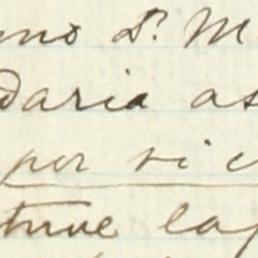 mo Sr. M
daria as
por si e
tuve la